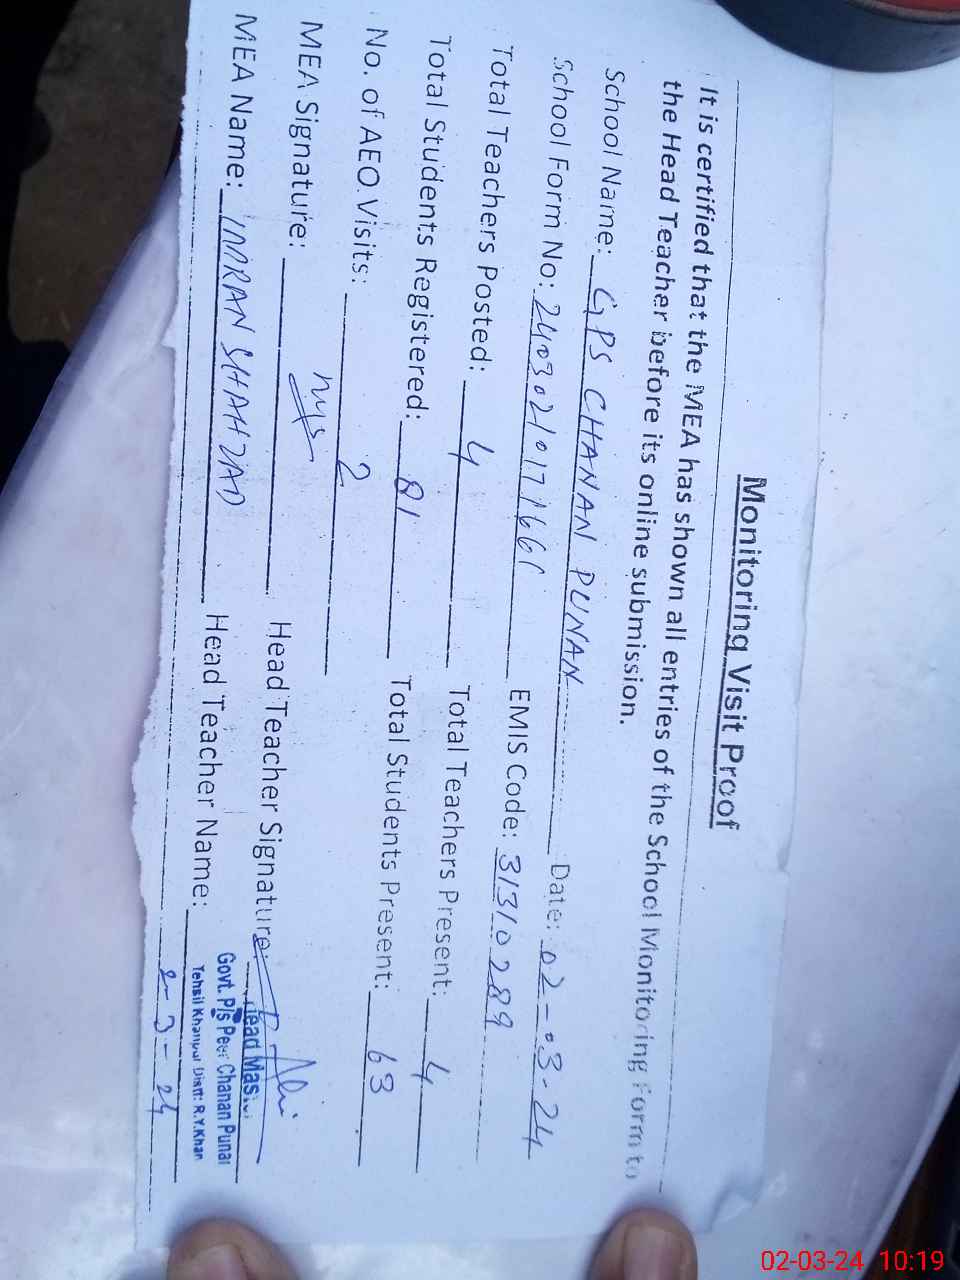 Monitoring Visit Proof
It is certified that the MEA has shown all entries of the School Monitoring Form to
the Head Teacher before its online submission.
School Name: GPS CHANAN PUNAN Date: 02-03-24
School Form No: EMIS Code: 31310289
Total Teachers Posted: 4 Total Teachers Present: 4
Total Students Registered: 81 Total Students Present: 63
No. of AEO Visits: 2
MEA Signature: Head Teacher Signature:
MEA Name: IMRAN SHAHZAD Head Teacher Name:
Head
Govt. P/s Peer Chanan Punan
Tehsil Khanpur Distt: R.Y.Khan
2-3-24
02-03-24 10:19